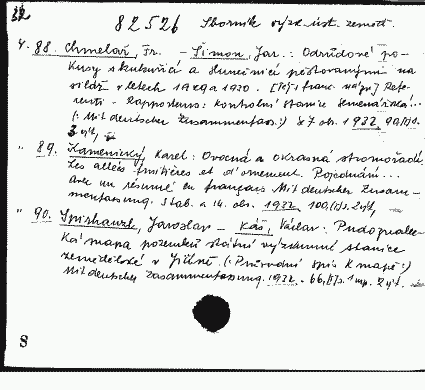 32
82526 Sborník výzk. úst. zeměd.
Č. 88. Chmelař, Fr. - Šimon, Jar.: Odrůdové po-
kusy s kukuřicí a slunečnicí pěstovanými na
siláž v letech 1929 a 1930. [Též i franc. náz.] Refe-
renti - Rapporteurs: Kontrolní stanice semenářská...
(: Mit deutscher Zusammenfass.:) 87 str. 1932.
" 89. Kamenický, Karel: Ovocná a okrasná stromořadí.
Les allées fruitières et d'ornement. Pojednání...
Avec un résumé en français Mit deutscher Zusam-
menfassung. 5 tab. a 14 obr. 1932. 100,
" 90. Spirhanzl, Jaroslav - Káš, Václav: Pudoznalec-
ká mapa pozemků státní výzkumné stanice
zemědělské v Jičíně. (: Průvodní spis k mapě :)
Mit deutscher Zusammenfassung. 1932. 66,
8